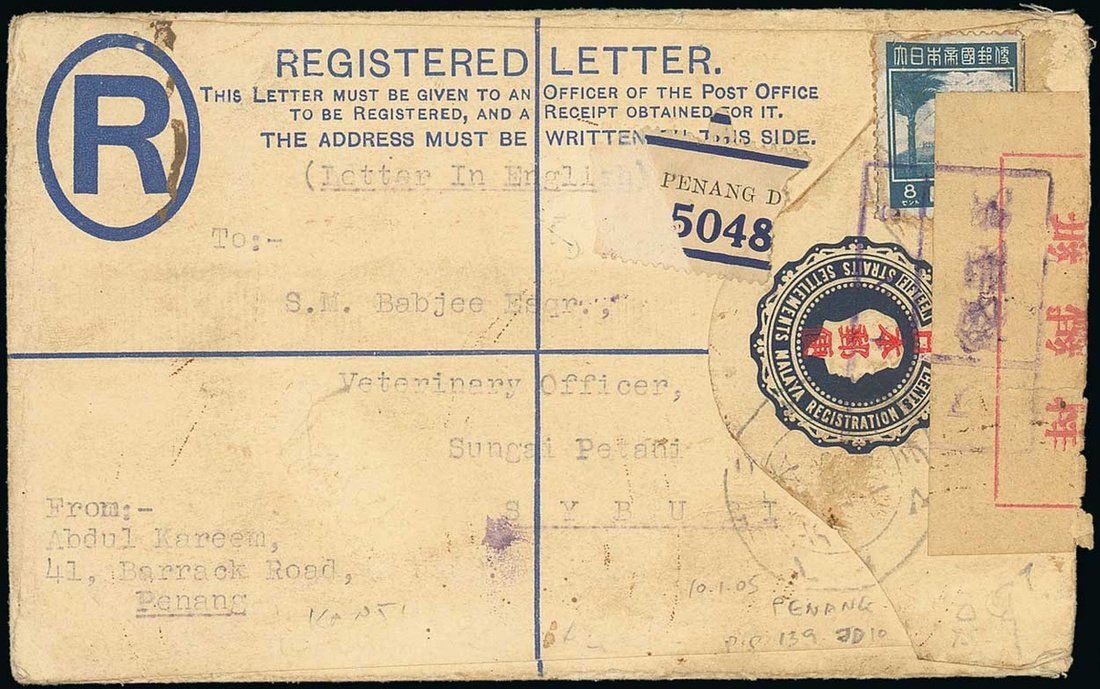 R
REGISTERED LETTER.
THIS LETTER MUST BE GIVEN TO AN OFFICER OF THE POST OFFICE
TO BE REGISTERED, AND A RECEIPT OBTAINED FOR IT.
THE ADDRESS MUST BE WRITTEN THIS SIDE.
(Letter In English)
PENANG D
5048
大日本帝國郵便
8
セント
To:-
S.M. Babjee Esqr.,
STRAITS SETTLEMENTS MALAYA REGISTRATION
FIFTEEN CENTS
本郵便
Veterinary Officer,
Sungai Petani
S Y B U S I
From:-
Abdul Kareem,
41, Barrack Road,
Penang
10.1.05
PENANG
P.P 139 JD10
緘封